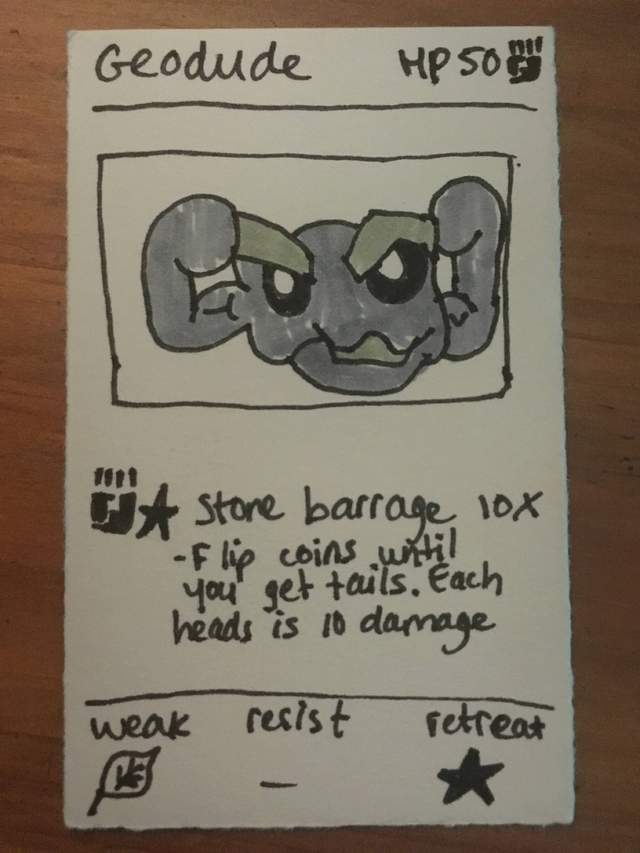 Geodude HP 50
Stone barrage 10X
-Flip coins until
you get tails. Each
heads is 10 damage
weak resist retreat
-